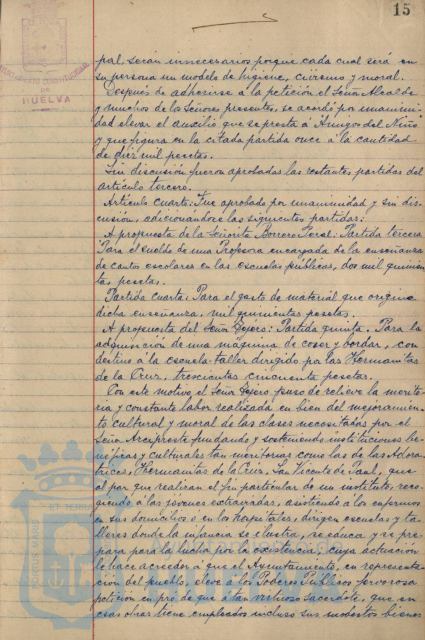 15
AYUNTAMIENTO CONSTITUCIONAL
DE
HUELVA
pal, serán innecesarios porque cada cual será en
su persona un modelo de higiene, civismo y moral.
Después de adherirse á la petición el Señor Alcalde
y muchos de los Señores presentes, se acordó por unanimi-
dad elevar el auxilio que se presta á Amigos del Niño
y que figura en la citada partida once á la cantidad
de diez mil pesetas.
Sin discusión fueron aprobadas las restantes partidas del
artículo tercero.
Artículo cuarto: Fue aprobado por unanimidad y sin dis-
cusión, adicionándole las siguientes partidas:
A propuesta de la Señorita Borrero Peral: Partida tercera
Para el sueldo de una Profesora encargada de la enseñanza
de cantos escolares en las escuelas públicas, dos mil quinien-
tas pesetas.
Partida cuarta: Para el gasto de material que origine
dicha enseñanza, mil quinientas pesetas.
A propuesta del Señor Tejero: Partida quinta. Para la
adquisición de una máquina de coser y bordar, con
destino á la escuela-taller dirigido por las Hermanitas
de la Cruz, trescientas cincuenta pesetas.
Con este motivo el Señor Tejero, puso de relieve la merito-
ria y constante labor realizada en bien del mejoramien-
to cultural y moral de las clases necesitadas por el
Señor Arcipreste fundando y sosteniendo instituciones be-
néficas y culturales tan meritorias como las de las Adora-
trices, Hermanitas de la Cruz, San Vicente de Paul, que
al par que realizan el fin particular de un instituto, reco-
giendo á las jóvenes extraviadas, asistiendo á los enfermos
en sus domicilios ó en los hospitales, dirigen escuelas y ta-
lleres donde la infancia se ilustra, se educa y se pre-
para para la lucha por la existencia; cuya actuación
le hace acreedor á que el Ayuntamiento, en representa-
ción del pueblo, eleve á los Poderes Públicos fervorosa
petición en pró de que á tan virtuoso sacerdote, que en
esas obras tiene empleados incluso sus modestos bienes